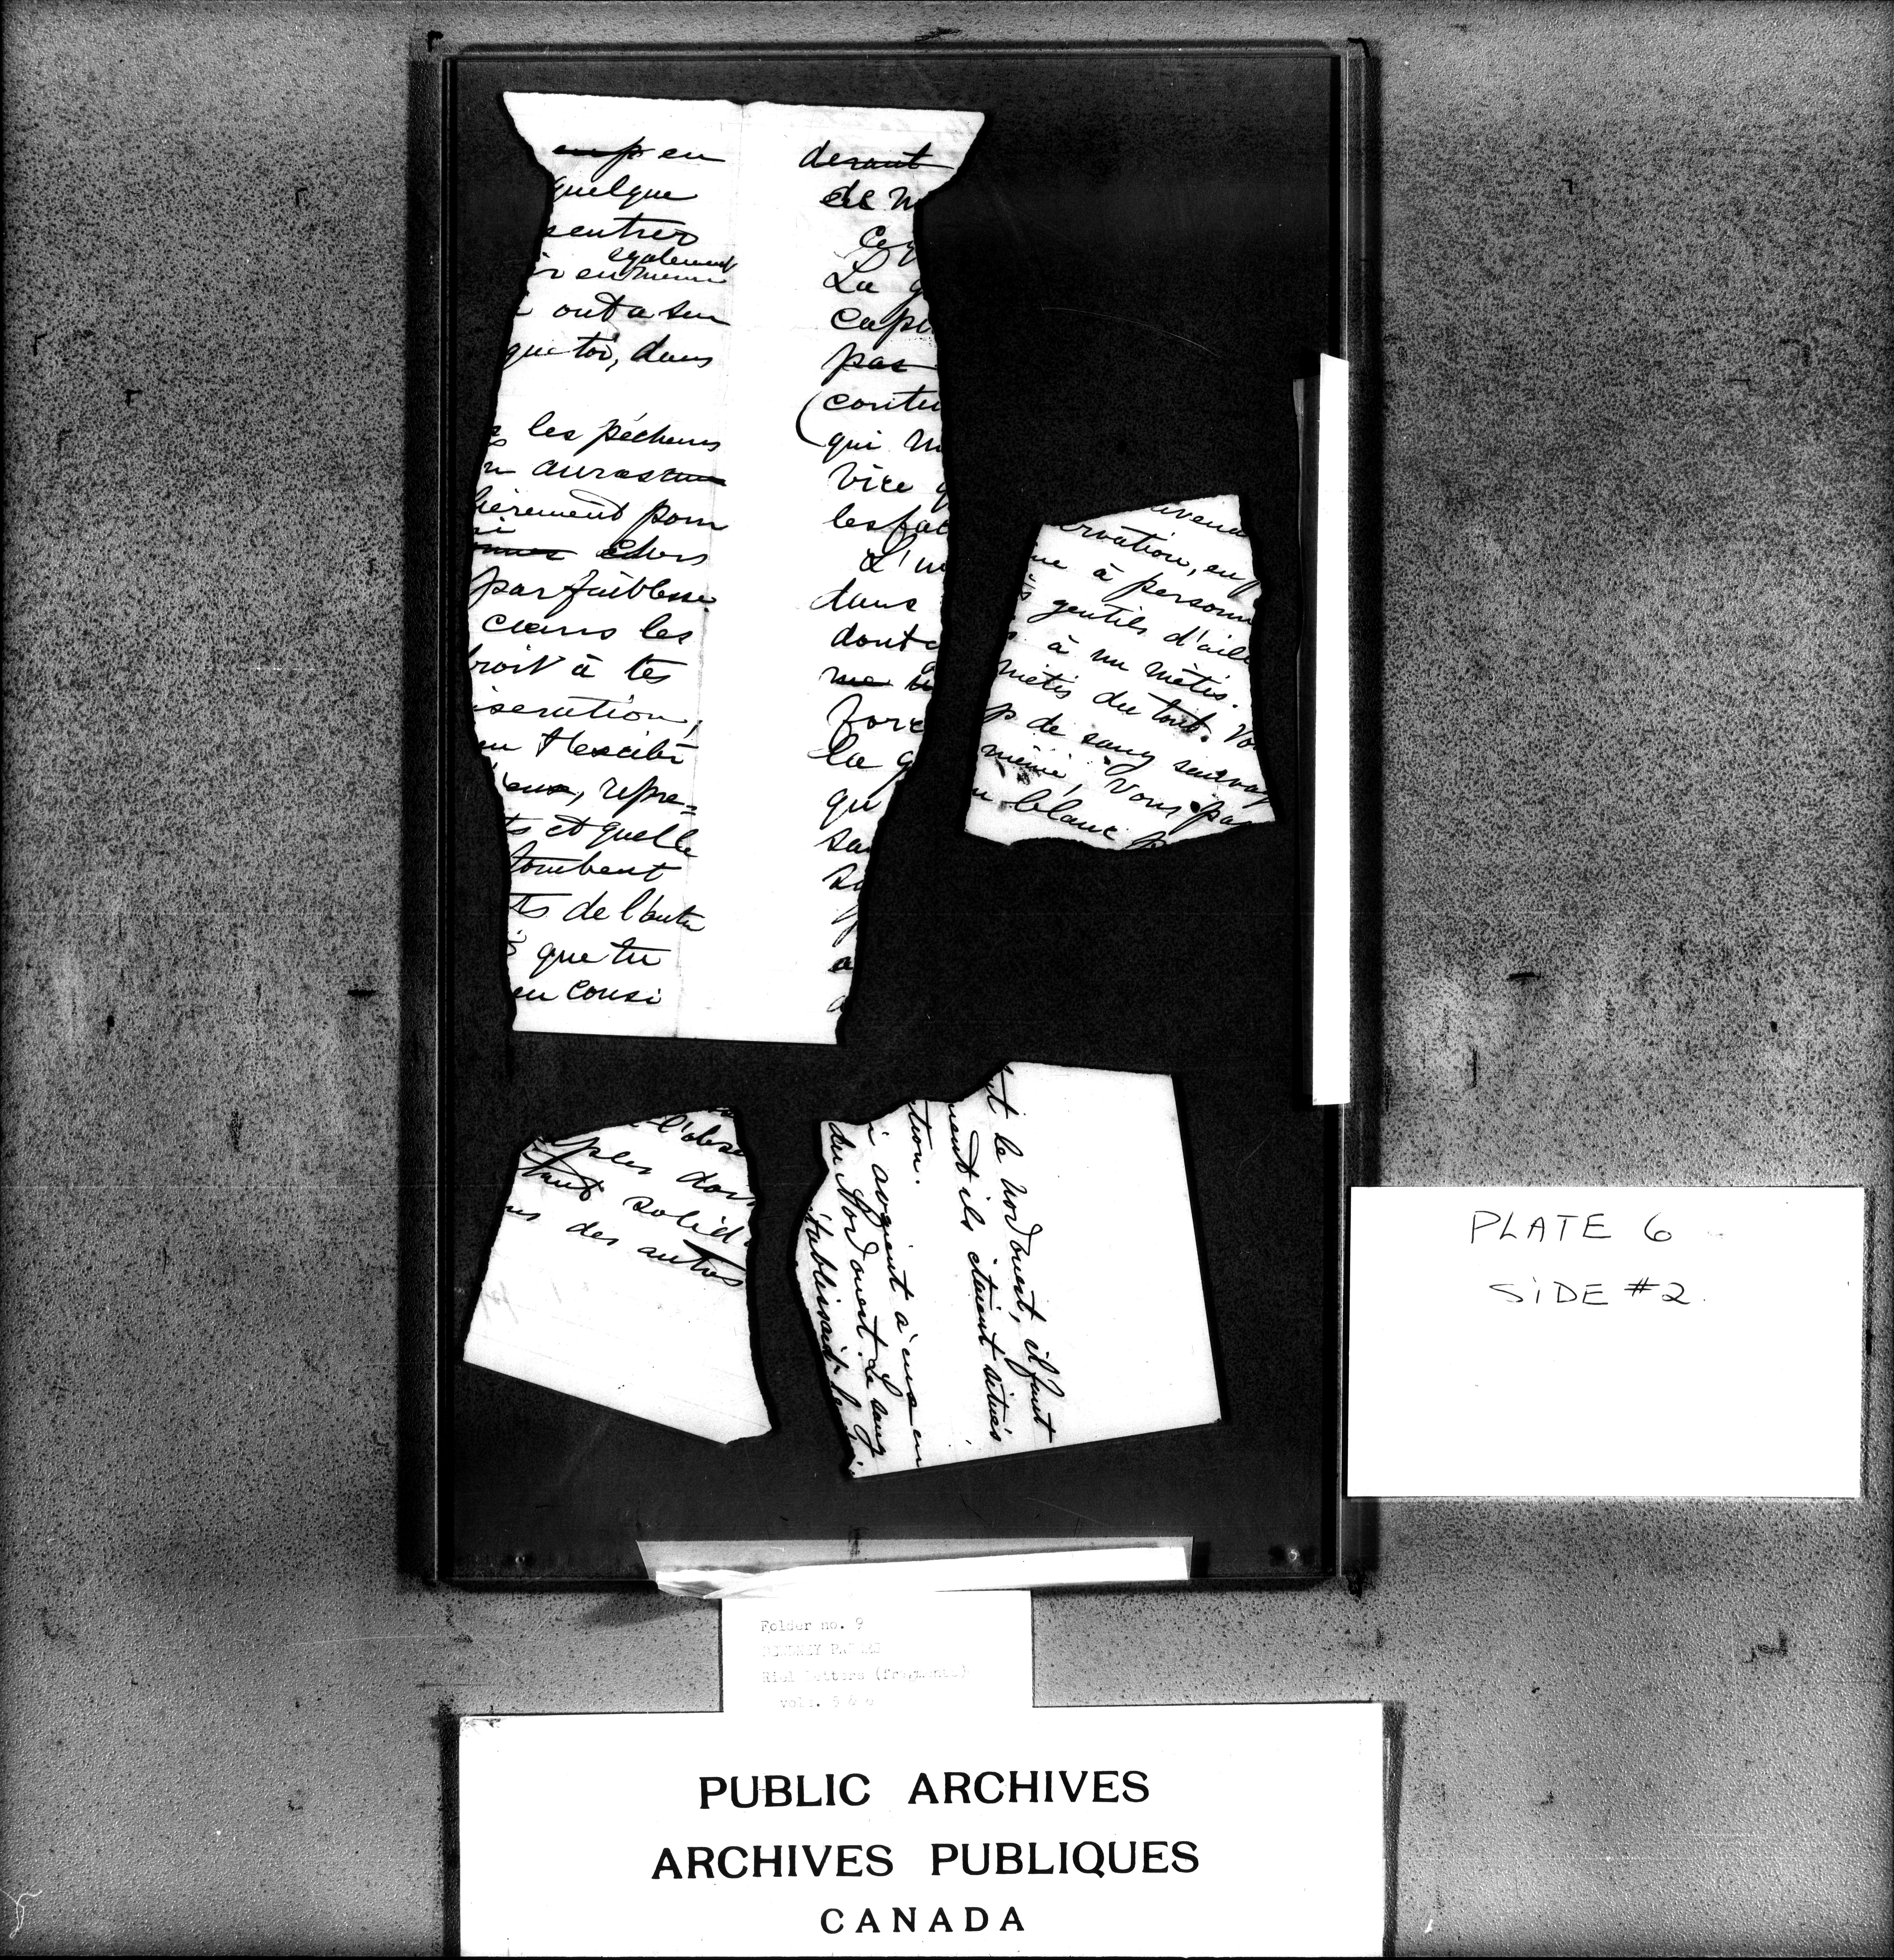 en
quelque
sentrer
egalement
r en meme
ont a sur
que toi, dans
les pécheurs
auras
lièrement pour
par faiblesse
dans les
roit à tes
iseration,
eux, repre=
ts et quelle
tombent
ts de l'autre
que tu
en consi
devant
de m
La g
cape
pas
contu
qui m
vice q
les fac
L'u
dans
dont
me
forc
la q
qu
sa
avenu
rvation, en p
ne à personn
gentils d'aill
à un métis.
métis du tout. Vo
p de sang sauvag
même, Vous pa
n blanc
l'obse
ples dou
tant solid
ns des autres
t le Nord ouest, il faut
ment ils étaient situés
tion.
i avaient à eux en
du Nord ouest. Le sang
établissait
PLATE 6
SiDE #2.
Folder no. 9
Riel letters (fragments)
vols. 5 & 6
PUBLIC ARCHIVES
ARCHIVES PUBLIQUES
CANADA